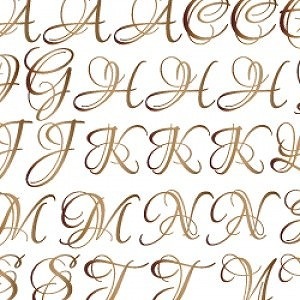 A A A C C C
G H H H
J J K K K
M M N N N
S S T T